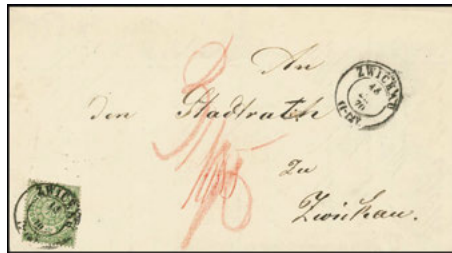 An
den Stadtrath
zu
Zwickau.
ZWICKAU
18
70
ZWICKAU
18